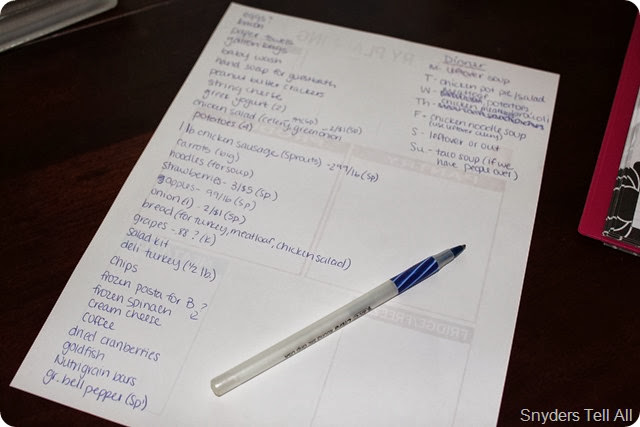 eggs?
brush
paper towels
gallon bags
baby wash
hand soap for guestbath
peanut butter crackers
string cheese
greek yogurt (2)
chicken salad (celery, green onion - 2/$1 (sp)
potatoes (4)
1 lb chicken sausage (sprouts) - 2.99/lb (sp)
carrots (big)
noodles (for soup)
strawberries - 3/$5 (sp)
apples - 99/lb (sp)
onion (1) - 2/$1 (sp)
bread (for turkey, meatloaf, chicken salad)
grapes - 88? (k)
salad kit
deli turkey (1/2 lb)
chips
frozen pasta for B ?
frozen spinach 2
cream cheese
coffee
dried cranberries
goldfish
Nutrigrain bars
gr. bell pepper (sp)
Dinner
M- leftover soup
T- chicken pot pie/salad
W- potatoes
Th-
F- chicken noodle soup
S- leftover or out
Su- taco soup (if we
have people over)
RY PLANNING
FRIDGE/FREE
Snyders Tell All